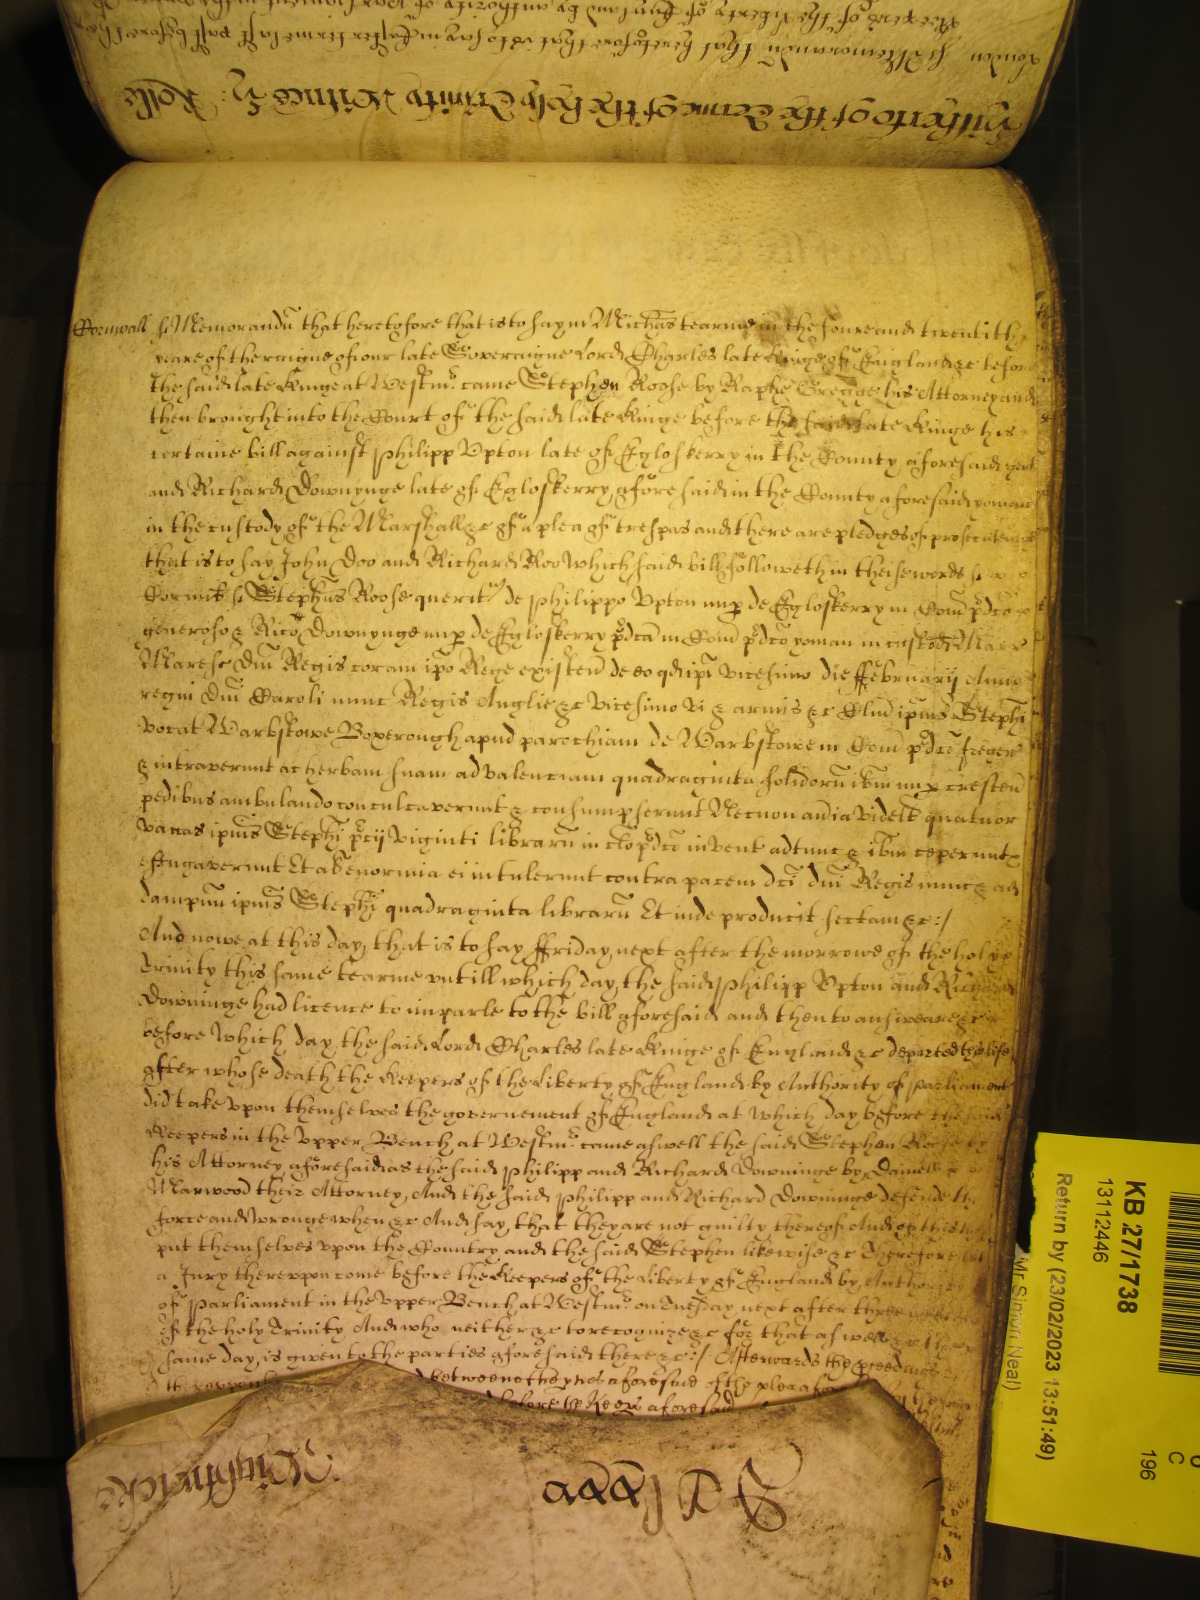 Hitherto of the Terme of the holy Trinity Witnes H: Rolle
London ss Memorandu that heretofore that is to say in Easter terme last past before the
Keepers of the liberty of England by authority of Parliament
Cornwall ss Memorandu that heretofore that is to say in Michas tearme in the foure and twentithe
yeare of the raigne of our late Soveraigne Lord Charles late Kinge of England &c before
the said late Kinge at Westmr. came Stephen Roose by Raphe Gregge his Attorney and
then brought into the Court of the said late Kinge before the said late Kinge his
certaine bill against Philipp Upton late of Egloskerry in the County aforesaid gent
and Richard Downynge late of Egloskerry aforesaid in the County aforesaid yoman
in the custody of the Marshall &c of a plea of trespas and there are pledges of prosecuteinge
that is to say John Doo and Richard Roo Which said bill followeth in theise words ss
Cornub ss Stephus Roose querit de Philippo Upton nup de Egloskerry in Com pdco
generoso & Rico Downynge nup de Egloskerry pdca in Com pdco yoman in custod Marr
Maresc Dni Regis coram ipo Rege existen de eo qd ipi vicesimo die ffebruarij Anno
regni Dni Caroli nunc Regis Anglie &c vicesimo vi & armis &c Clm ipius Stephi
vocat Warbstowe Boxerough apud parochiam de Warbstowe in Com pdco freger
& intraverunt ac herbam suam ad valenciam quadraginta solidoru ibm nup crescen
pedibus ambulando conculcaverunt & consumpserunt Necnon aialia videlt quatuor
vaccas ipius Stephi pcij viginti libraru in clo pdco invent adtunc & ibm ceperunt &
effugaverunt Et al enormia ei intulerunt contra pacem dci dni Regis nunc & ad
dampnu ipius Stephi quadraginta libraru Et inde producit sectam &c:/
And nowe at this day, that is to say ffriday next after the morrowe of the holy
Trinity this same tearme untill which day, the said Philipp Upton and Richard
Downinge had licence to imparle to the bill aforesaid and then to answeare &c
before which day, the said Lord Charles late Kinge of England &c departed this life
after whose death the Keepers of the Liberty of England by Authority of Parliament
did take upon themselves the governement of England at which day before the said
Keepers in the Upper Bench at Westmr. came aswell the said Stephen Roose by
his Attorney aforesaid as the said Philipp and Richard Downinge by Daniell
Marwood their Attorney, And the said Philipp and Richard Downinge defende the
force and wronge when &c And say, that they are not guilty thereof And of this
put themselves upon the Country and the said Stephen likewise &c Therefore let
a Jury thereupon come before the Keepers of the Liberty of England by Authority
of Parliament in the Upper Bench at Westmr. on Tuesday next after three
of the holy Trinity And who neither &c to recognize &c for that aswell &c the
same day, is given to the parties aforesaid there &c:/ Afterwards the
betweene the ptyes aforesaid of the plea
before the aforesaid
Lightwicke
KB 27/1738
13112446
Return by (23/02/2023 13:51:49)
Mr Simon Neal)
C
196